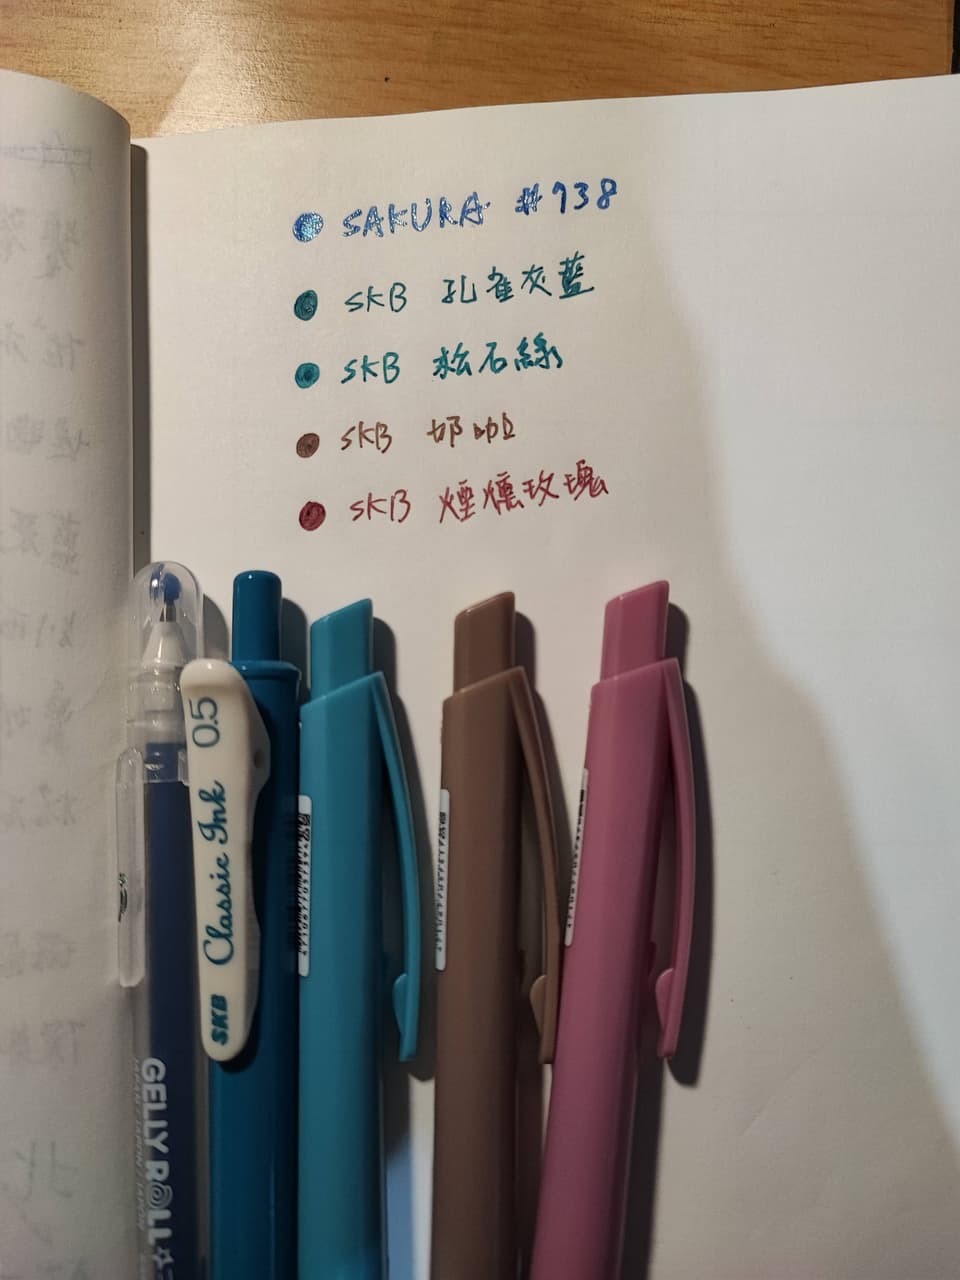 SAKURA #738
SKB 孔雀灰藍
SKB 松石綠
SKB 奶咖
SKB 煙燻玫瑰
SKB Classic Ink 0.5
GELLY ROLL